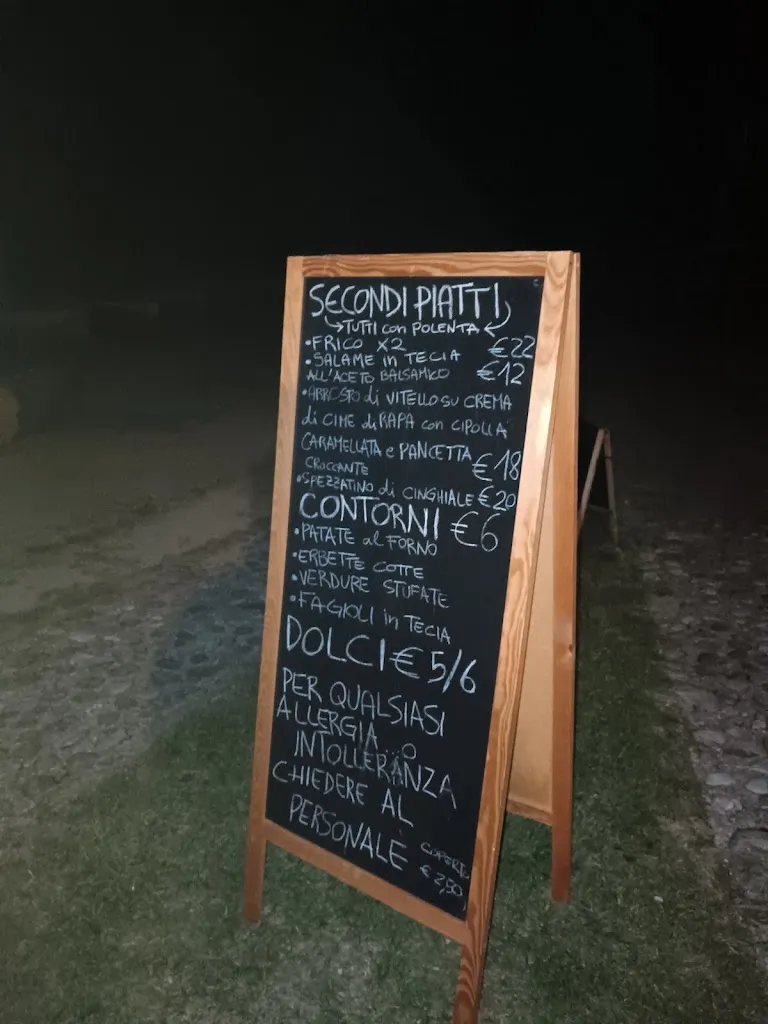 SECONDI PIATTI
TUTTI con POLENTA
•FRICO X2 €22
•SALAME in TECIA
ALL'ACETO BALSAMICO €12
•ARROSTO di VITELLO SU CREMA
di CIME di RAPA con CIPOLLA
CARAMELLATA e PANCETTA
CROCCANTE €18
•SPEZZATINO di CINGHIALE €20
CONTORNI €6
•PATATE al FORNO
•ERBETTE COTTE
•VERDURE STUFATE
•FAGIOLI in TECIA
DOLCI €5/6
PER QUALSIASI
ALLERGIA O
INTOLLERANZA
CHIEDERE AL
PERSONALE
COPERTO
€2,50